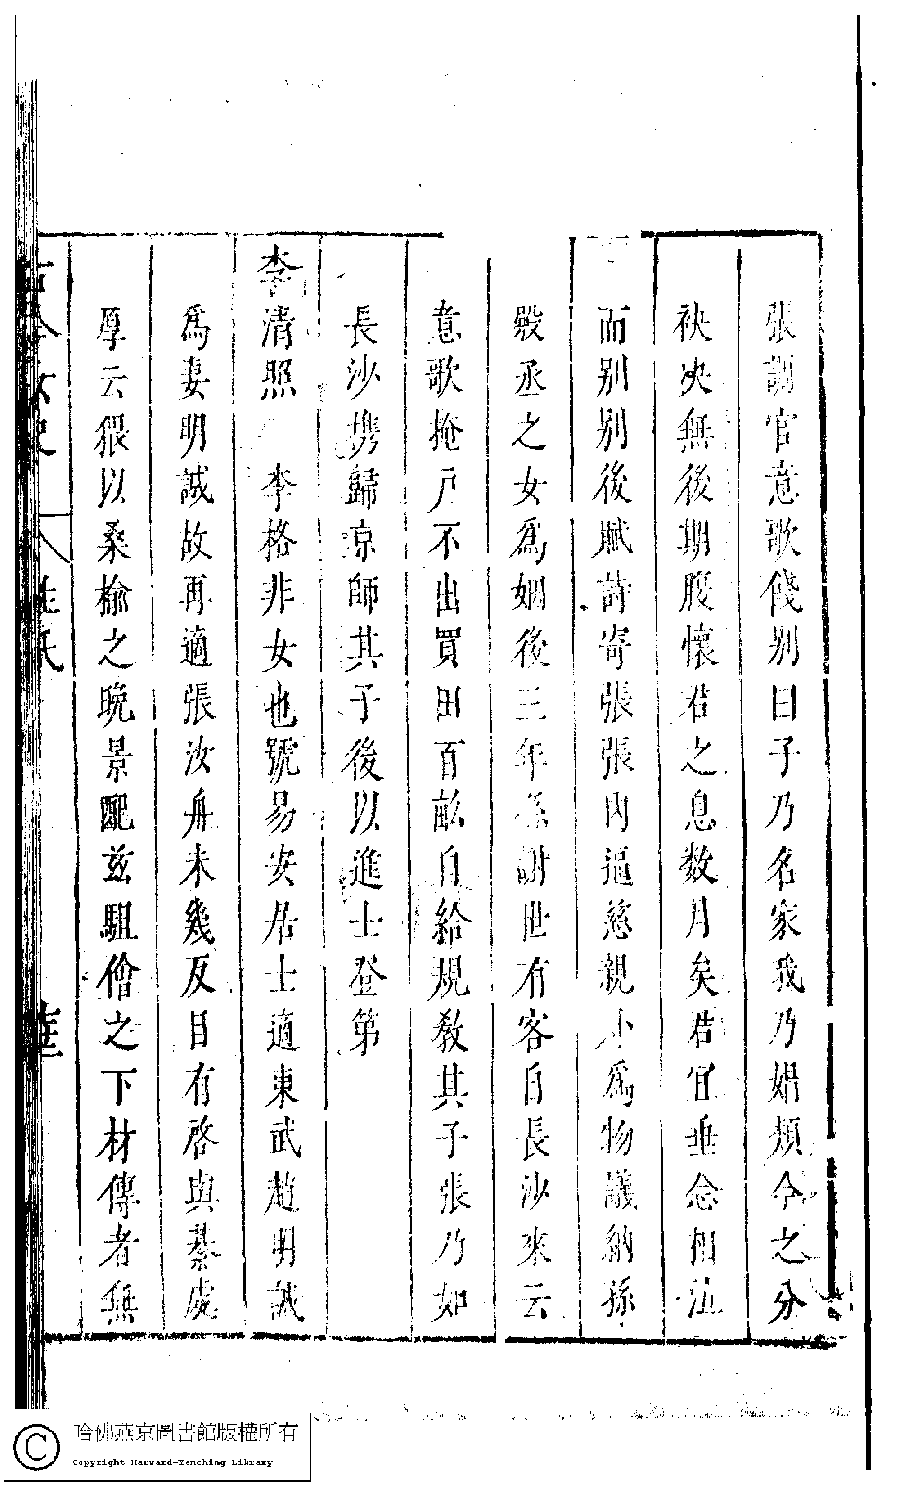 張調官意歌餞別曰子乃名家我乃娼類今之分
袂決無後期腹懷君之息数月矣君宜垂念相泣
而別別後賦詩寄張張內逼慈親外為物議納孫
殿丞之女為姻後三年孫謝世有客自長沙來云
意歌掩戶不出買田百畝自給規教其子張乃如
長沙携歸京師其子後以進士登第
李清照　李格非女也號易安居士適東武趙明誠
為妻明誠故再適張汝舟未幾反目有啓與綦處
厚云猥以桑榆之晩景配玆駔儈之下材傳者無
古今女史　八姓氏
哈佛燕京圖書館版權所有
Copyright Harvard-Yenching Library